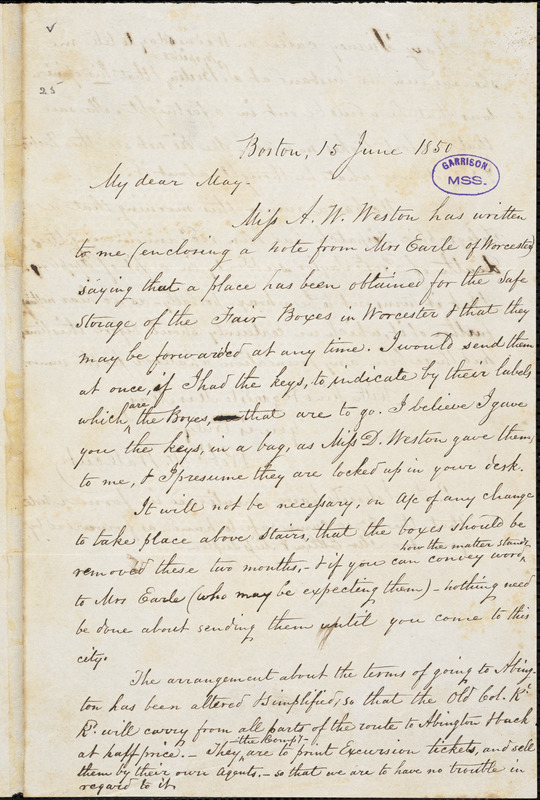 25
Boston, 15 June 1850
GARRISON
MSS.
My dear May.
Miss A. W. Weston has written
to me (enclosing a note from Mrs Earle of Worcester)
saying that a place has been obtained for the safe
storage of the Fair Boxes in Worcester & that they
may be forwarded at any time. I would send them
at once, if I had the keys, to indicate by their labels
which are the Boxes, that are to go. I believe I gave
you the keys, in a bag, as Miss D. Weston gave them
to me, & I presume they are locked up in your desk.
It will not be necessary, on a/c of any change
to take place above stairs, that the boxes should be
removed these two months,- & if you can convey word, how the matter stands
to Mrs Earle (who may be expecting them) - nothing need
be done about sending them until you come to this
city.
The arrangement about the terms of going to Abing-
ton has been altered & simplified, so that the Old Col. R.
Rd. will carry from all parts of the route to Abington & back
at half price. - They, -the Comp.- are to print Excursion tickets, and sell
them by their own Agents. - so that we are to have no trouble in
regard to it.